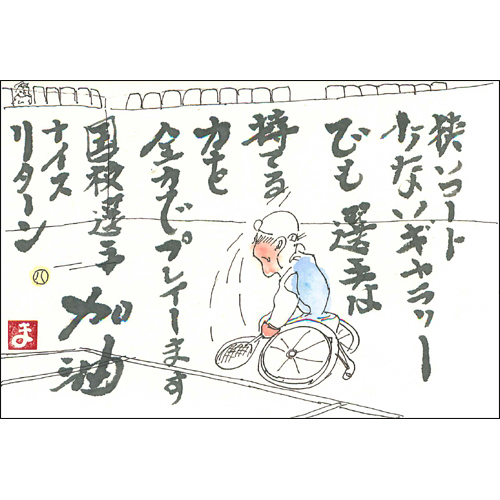 狭いコート
少ないギャラリー
でも 選手は
持てる
力を
全力でプレイーます
国枝選手 加油
ナイス
リターン
ま